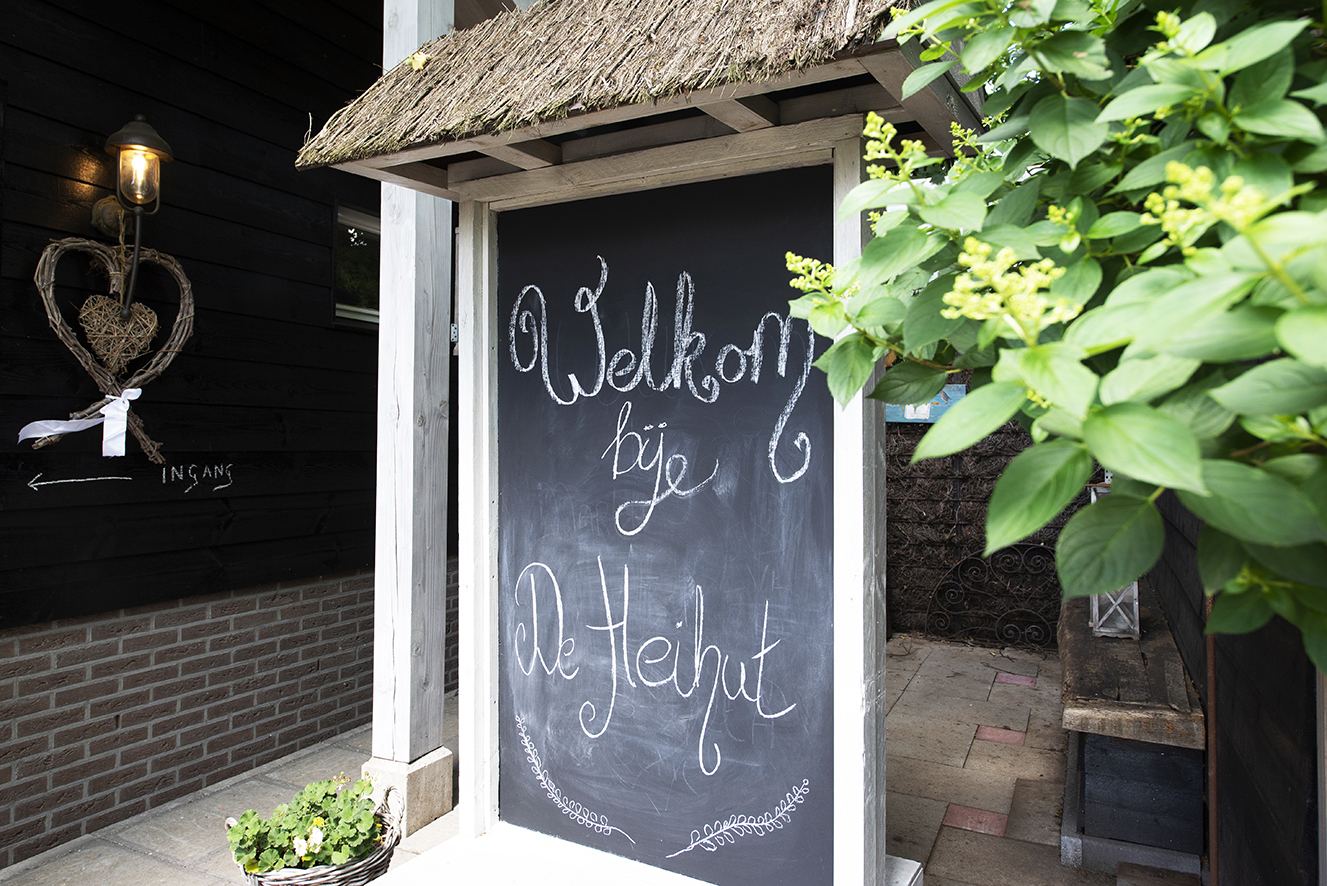 Welkom
bÿe
De Heihut
← INGANG